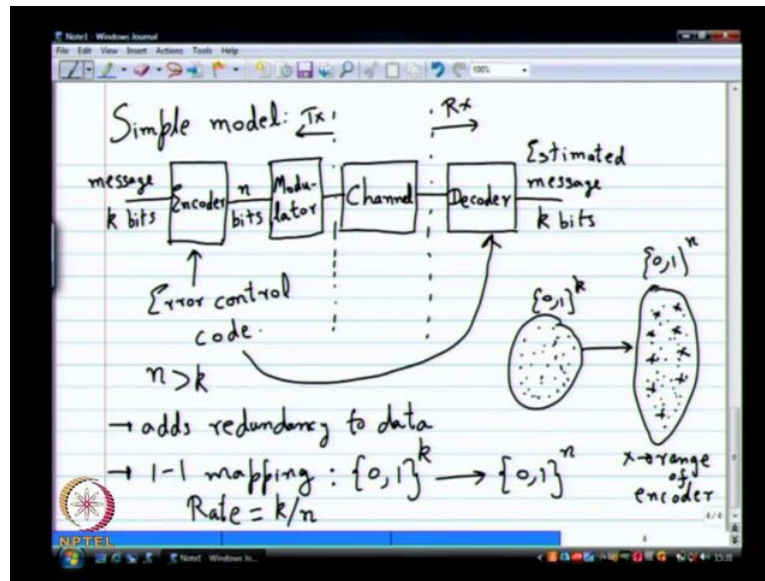 Note1 - Windows Journal
File Edit View Insert Actions Tools Help
100%
Simple model: Tx Rx
message k bits Encoder n bits Modu-lator Channel Decoder Estimated message k bits
Error control code.
{0,1}^k {0,1}^n
n > k
→ adds redundancy to data
→ 1-1 mapping : {0,1}^k → {0,1}^n
x → range of encoder
Rate = k/n
4/4
4
NPTEL
Note1 - Windows Jo...
15:31